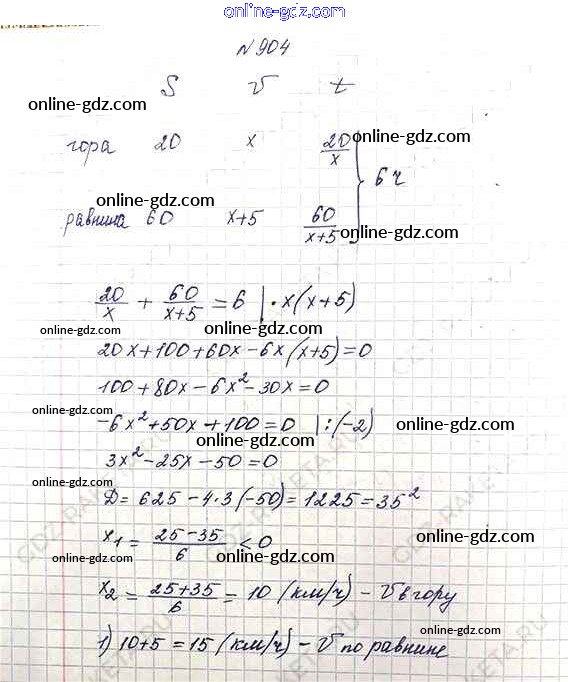 online-gdz.com
N 904
S V t
online-gdz.com
гора 20 x 20/x
online-gdz.com
6 ч
online-gdz.com
равнина 60 x+5 60/(x+5)
online-gdz.com
20/x + 60/(x+5) = 6 | · x(x+5)
online-gdz.com online-gdz.com
20x+100+60x-6x(x+5)=0
100+80x-6x²-30x=0
online-gdz.com
-6x²+50x+100=0 |:(-2)
online-gdz.com online-gdz.com
3x²-25x-50=0
D=625-4·3(-50)=1225=35²
online-gdz.com
x₁ = (25-35)/6 < 0
online-gdz.com online-gdz.com
x₂ = (25+35)/6 = 10 (км/ч) - V в гору
online-gdz.com
1) 10+5=15 (км/ч) - V по равнине
online-gdz.com
GDZ-RAKETA.RU